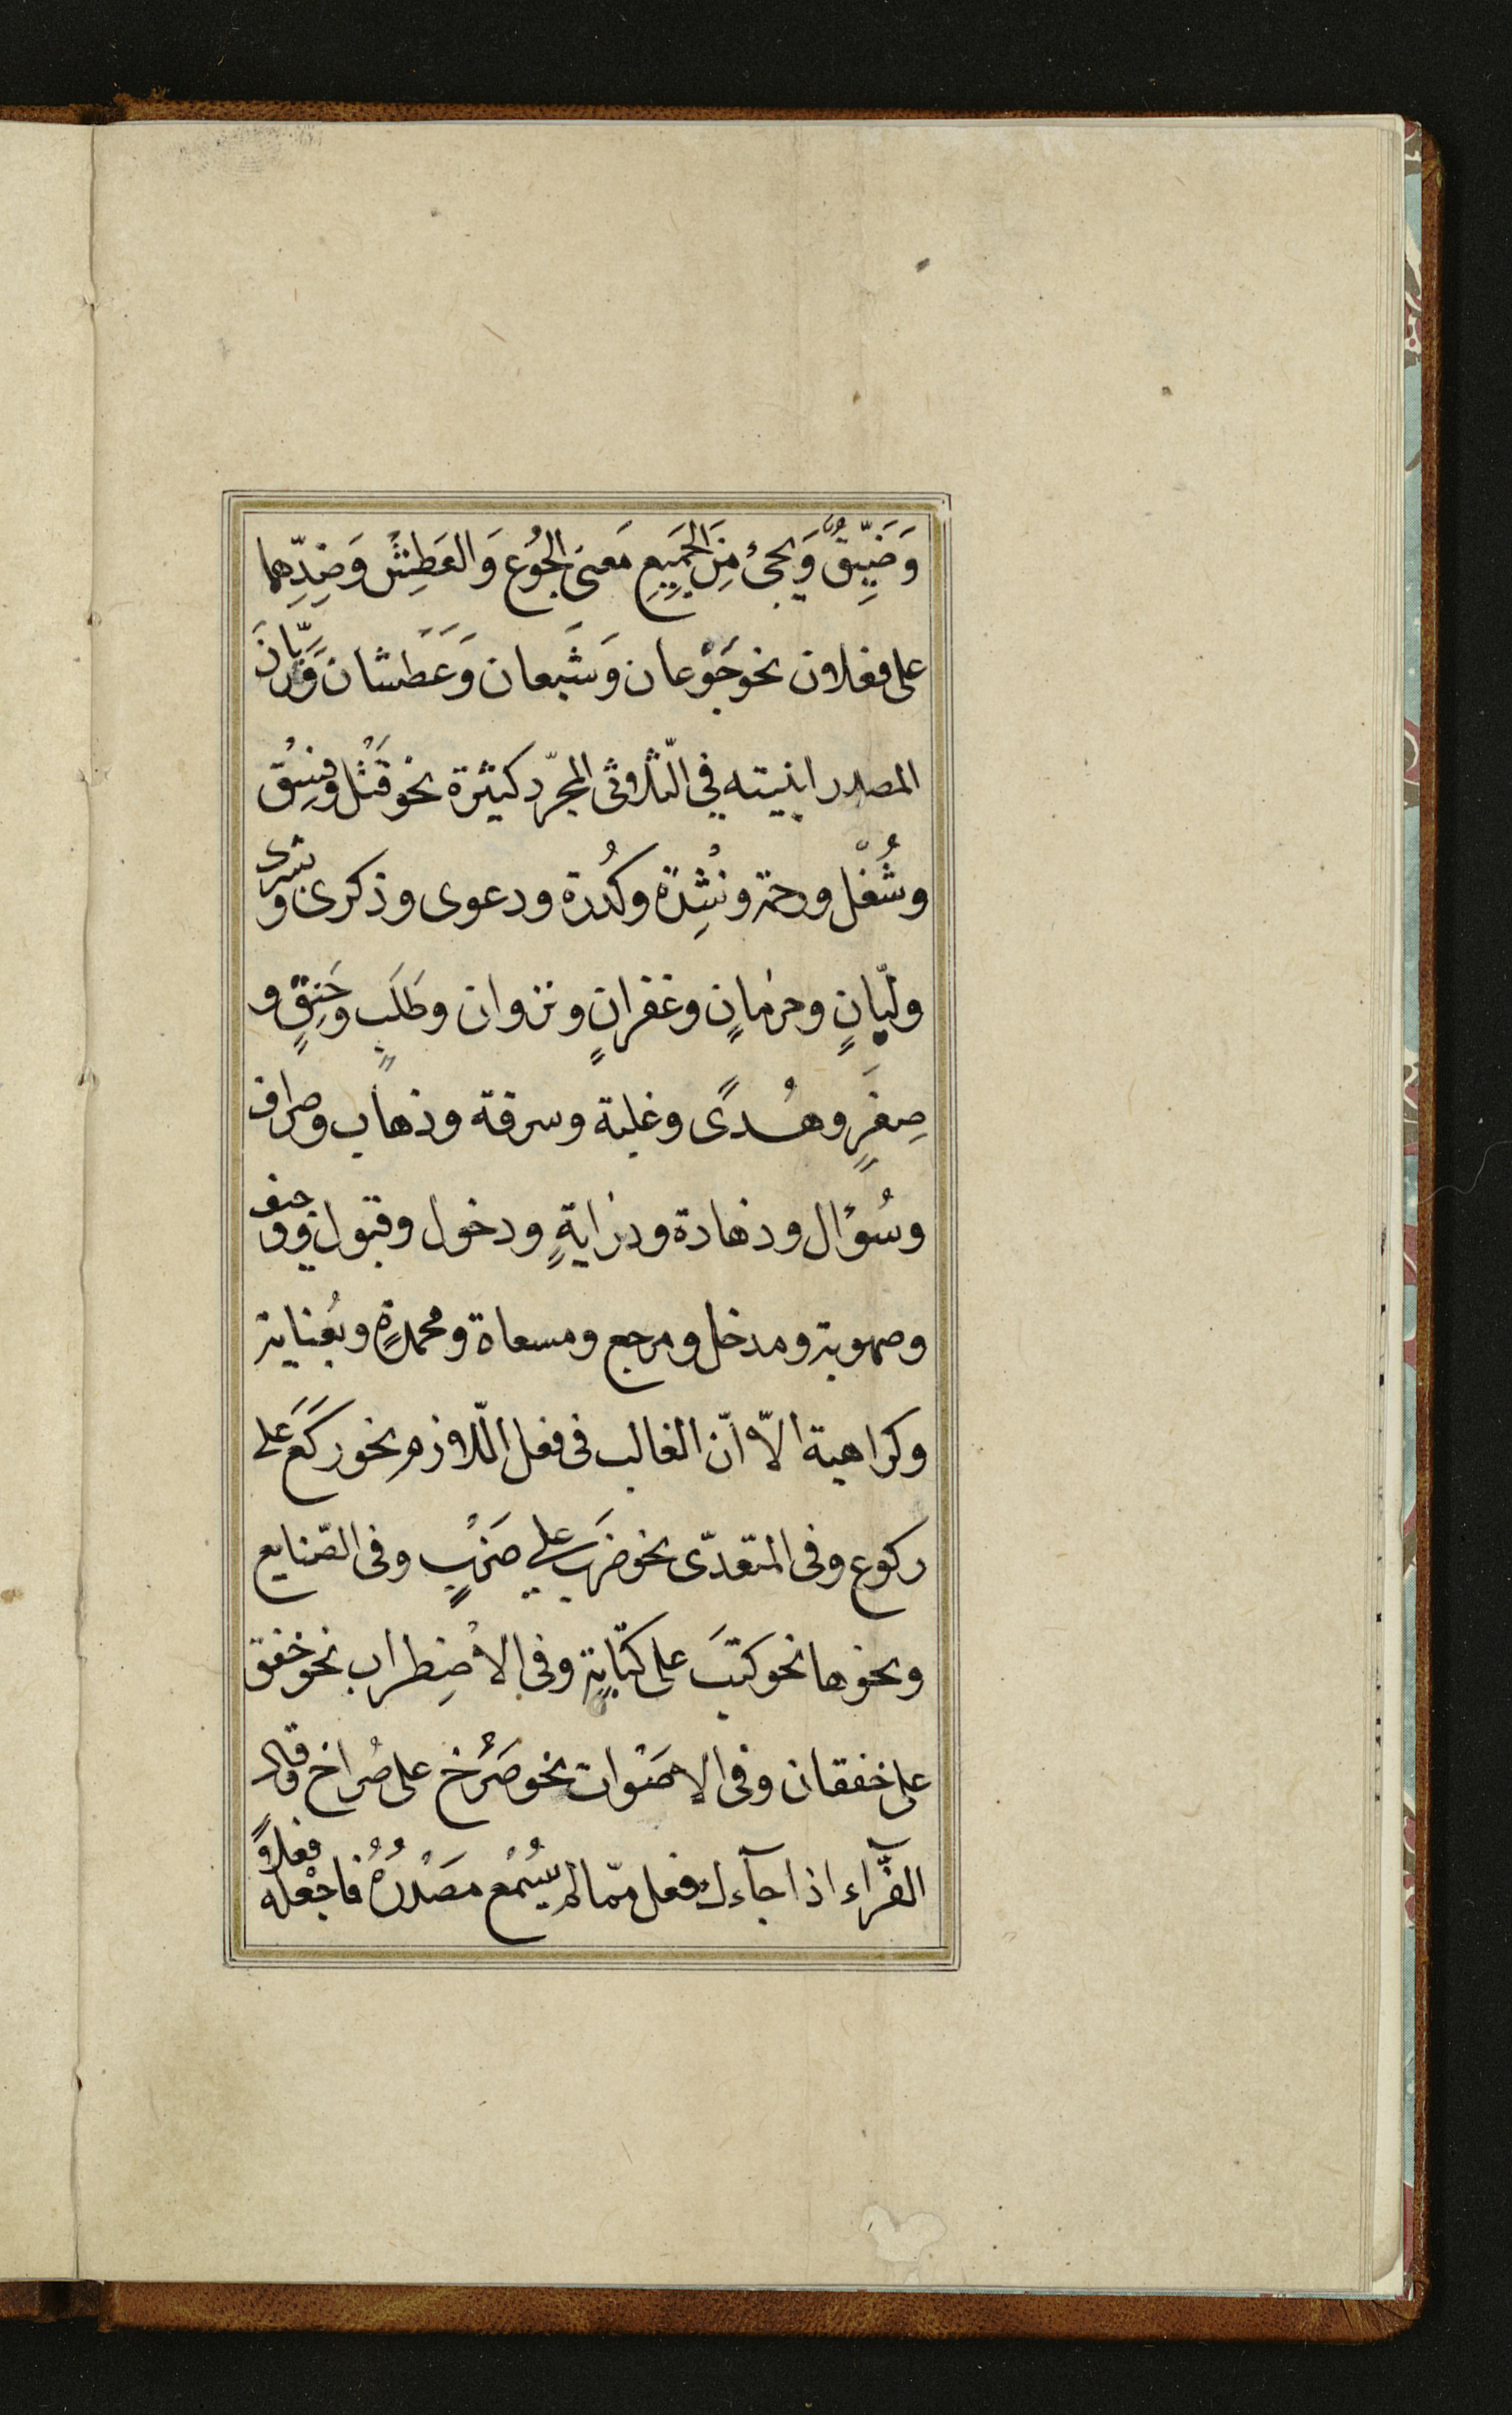 وَضَيِّقٌ وَيجىءُ مِنَ الجَمِيعِ مَعنىَ الجُوع وَالعَطِشِ وَضِدِّهما
على فعلان نحو جَوْعان وَشَبعان وَعَطشان وَرَيّانَ
المصدر ابنيته فى الثّلاثى المجرّد كثيرة نحو قَتْل وفِسْق
وشُغْل ورحمة ونِشْدة وكُدْرة ودعوى وذكرى وبشرى
وليّانٍ وحرمانٍ وغفرانٍ ونزوان وطَلَبٍ وخَنِقٍ و
صِغَرٍ وهُدىً وغلبة وسرقة وذهاب وصراف
وسُؤال وزهادة ودرايةٍ ودخول وقبول ووجيف
وصهوبة ومدخل ومرجع ومسعاة ومحمدةٍ وبُغناية
وكراهية الاّ انّ الغالب فى فعل اللّازم نحو ركَعَ على
ركوع وفى المتعدّى نحو ضرَب على ضَرْبٍ وفى الصّنايع
ونحوها نحو كتبَ على كتابةٍ وفى الاضِطراب نحو خفق
على خفقان وفى الاصَوات نحو صَرَخ على صُراخ وقال
الفرّآء اذا جآءك فعل ممّا لم يُسْمَع مَصْدَرُهُ فاجْعله فعلاً